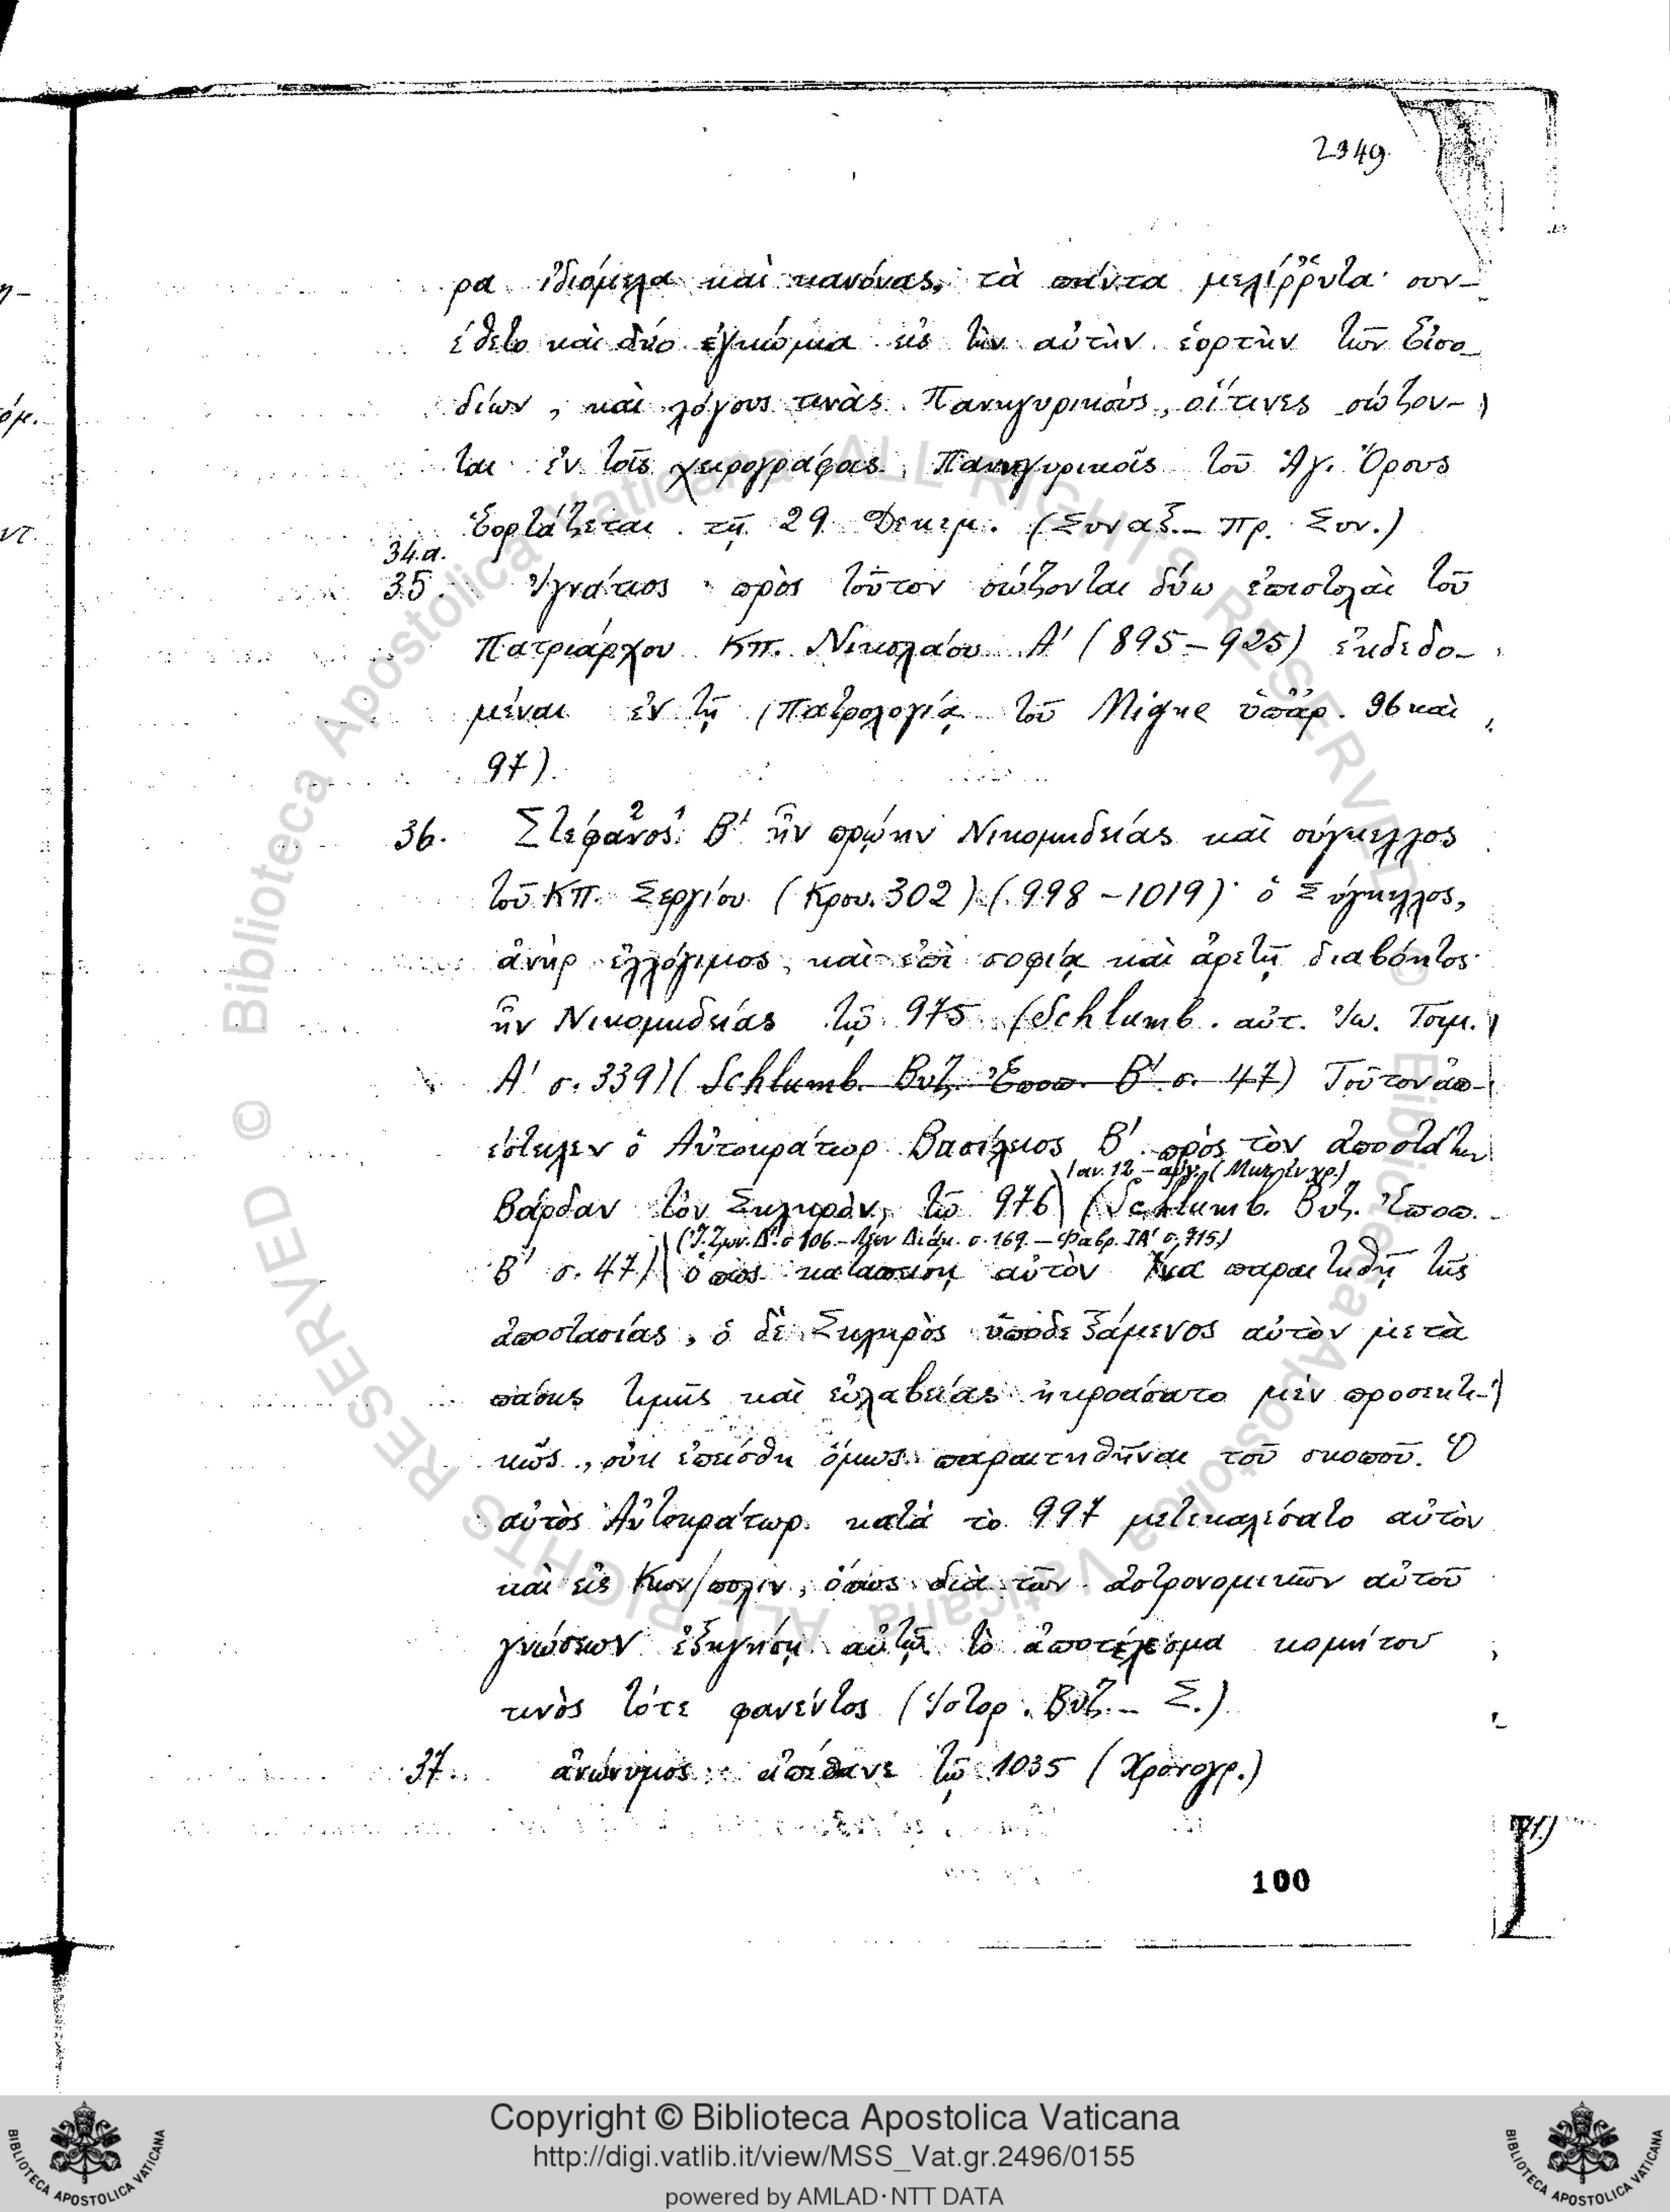 2949
ρα ἰδιόμελα καὶ κανόνας, τὰ πάντα μελίῤῥυτα· συν-
έθετο καὶ δύο ἐγκώμια εἰς τὴν αὐτὴν ἑορτὴν τῶν Εἰσο-
δίων, καὶ λόγους τινὰς Πανηγυρικούς, οἵτινες σώζον-
ται ἐν τοῖς χειρογράφοις Πανηγυρικοῖς τοῦ Ἁγ. Ὄρους
Ἑορτάζεται τῇ 29 Δεκεμ. (Συναξ. – Πρ. Συν.)
34.α.
35. Ἰγνάτιος· πρὸς τοῦτον σώζονται δύω ἐπιστολαὶ τοῦ
Πατριάρχου Κπ. Νικολάου Α′ (895–925) ἐκδεδο-
μέναι ἐν τῇ (Πατρολογίᾳ τοῦ Migne ὑπ' ἀρ. 96 καὶ
97).
36. Στέφανος² Β′¹ ἦν πρώην Νικομηδείας καὶ σύγκελλος
τοῦ Κπ. Σεργίου (Κρου. 302) (998–1019)· ὁ Σύγκελλος,
ἀνὴρ ἐλλόγιμος, καὶ ἐπὶ σοφίᾳ καὶ ἀρετῇ διαβόητος·
ἦν Νικομηδείας τῷ 975 (Schlumb. αὐτ. Ἰω. Τσιμ.
Α′ σ. 339) (Schlumb. Βυζ. Ἐποπ. Β′ σ. 47) Τοῦτον ἀπ-
έστειλεν ὁ Αὐτοκράτωρ Βασίλειος Β′ πρὸς τὸν ἀποστάτην
Ιαν. 12 –
Βάρδαν τὸν Σκληρὸν, τῷ 976) (Schlumb. Βυζ. Ἐποπ.
σ. 106. – σ. 169. – Φαβρ. ΙΑ′ σ. 715)
Β′ σ. 47) ὅπως καταπείσῃ αὐτὸν ἵνα παραιτηθῇ τῆς
ἀποστασίας, ὁ δὲ Σκληρὸς ὑποδεξάμενος αὐτὸν μετὰ
πάσης τιμῆς καὶ εὐλαβείας ἠκροάσατο μὲν προσεκτι-
κῶς, οὐκ ἐπείσθη ὅμως παραιτηθῆναι τοῦ σκοποῦ. Ὁ
αὐτὸς Αὐτοκράτωρ κατὰ τὸ 997 μετεκαλέσατο αὐτὸν
καὶ εἰς Κων/πολιν, ὅπως διὰ τῶν ἀστρονομικῶν αὐτοῦ
γνώσεων ἐξηγήσῃ αὐτῷ τὸ ἀποτέλεσμα κομήτου
τινὸς τότε φανέντος (Ἱστορ. Βυζ. – Σ.)
37. ἀνώνυμος· ἀπέθανε τῷ 1035 (Χρονογρ.)
100
© Biblioteca Apostolica Vaticana ALL RIGHTS RESERVED
Copyright © Biblioteca Apostolica Vaticana
http://digi.vatlib.it/view/MSS_Vat.gr.2496/0155
powered by AMLAD·NTT DATA
BIBLIOTECA APOSTOLICA VATICANA
BIBLIOTECA APOSTOLICA VATICANA